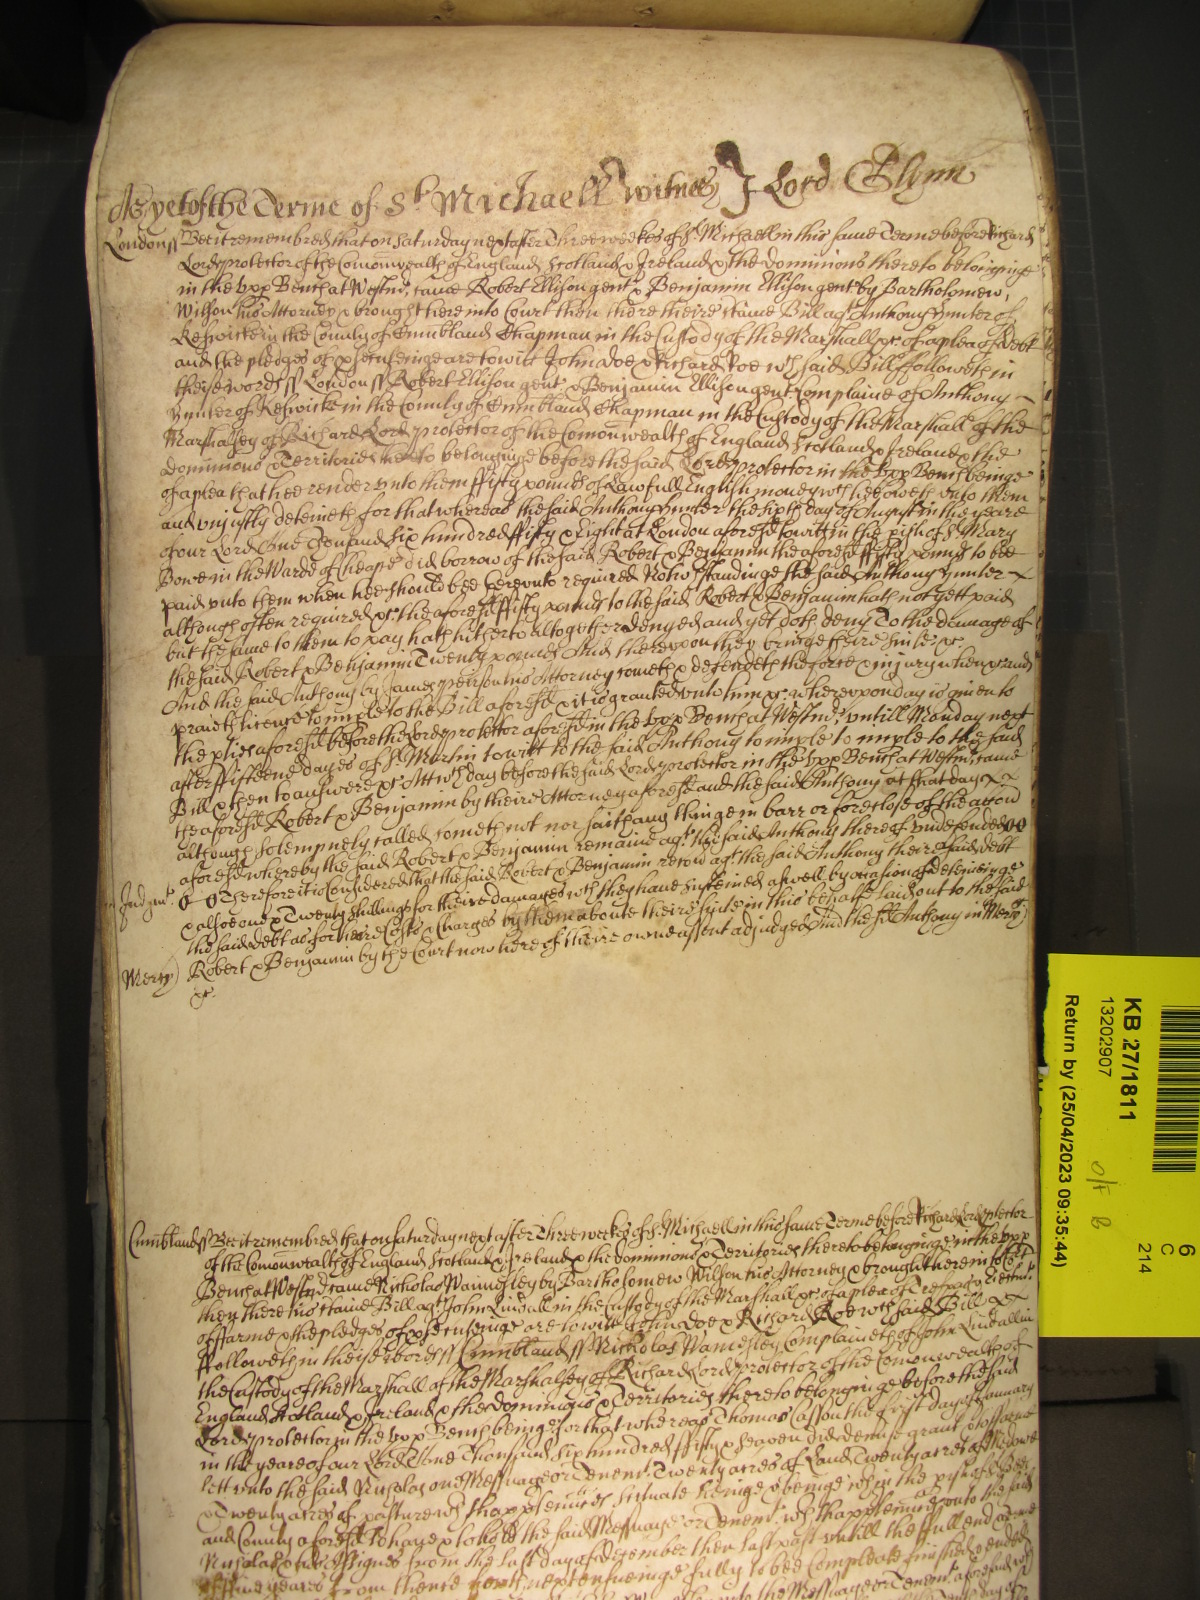 As yet of the Terme of St Michaell witness J Lord Glynn
London ss Bee it remembred that on Saturday next after Three weekes of St Michaell in this same Terme before Richard
Lord protector of the Comonwealth of England Scotland & Ireland & the dominions thereto belonginge
in the upp Bench at Westmr came Robert Ellison gent & Benjamin Ellison gent by Bartholomew
Wilson his Attorney & brought here into Court then there theire Bill agt Anthony of
Keswicke in the County of Cumbland Chapman in the Custody of the Marshall &c of a plea of debt
and the pledges of are to witt John doe & Richard Roe wch said Bill followeth in
theise words ss London ss Robert Ellison gent & Benjamin Ellison gent Complaine of Anthony
of Keswicke in the County of Cumbland Chapman in the Custody of the Marshall of the
Marshalsey of Richard Lord protector of the Comonwealth of England Scotland & Ireland & the
dominions & Territories thereto belonginge before the said Lord protector in the upp Bench beinge
of a plea that hee render unto them ffifty pounds of Lawfull English money wch hee oweth unto them
and unjustly deteineth for that whereas the said Anthony the sixth day of August in the yeare
of our Lord One Thousand six hundred ffifty & Eight at London aforesd to witt in the pish of St Mary
Bowe in the Warde of Cheape did borrow of the said Robert & Benjamin the aforesd ffifty pounds to bee
paid unto them when hee should bee thereunto required Notwthstandinge the said Anthony
although often required &c the aforesd ffifty pounds to the said Robert & Benjamin hath not yett paid
but the same to them to pay hath hitherto altogether denyed and yet doth deny To the damage of
the said Robert & Benjamin Twenty pounds And thereupon they bringe theire suite &c
And the said Anthony by James his Attorney cometh & defendeth the force & injury when &c and
prayeth licence to imple to the Bill aforesd & it is granted unto him &c whereupon day is given to
the pties aforesd before the Lord protector aforesd in the upp Bench at Westmr untill Monday next
after ffifteene dayes of St Martin to witt to the said Anthony to imple to imple to the said
Bill & then to answere &c Att wch day before the said Lord protector in the upp Bench at Westmr came
the aforesd Robert & Benjamin by theire Attorney aforesd and the said Anthony at that day
although solempnely called cometh not nor saith any thinge in barr or foreclose of the accon
aforesd whereby the said Robert & Benjamin remaine agt the said Anthony thereof undefended
Judgmt Therefore it is Considered that the said Robert & Benjamin recou agt the said Anthony theire said debt
& alsoe one & Twenty shillings for theire damages wch they have susteined aswell by occasion of deteininge
the said debt as for theire Costs & Charges by them aboute theire suite in this behalfe laid out to the said
Mercy Robert & Benjamin by the Court now here of theire owne assent adjudged And the sd Anthony in Mercy
&c
Cumbland ss Bee it remembred that on Saturday next after Three weekes of St Michaell in this same Terme before Richard Lord protector
of the Comonwealth of England Scotland & Ireland & the dominions & Territories thereto belonginge in the upp
Bench at Westmr came Nicholas Wamesley by Bartholomew Wilson his Attorney & brought here into Court
then there his Bill agt John Lindall in the Custody of the Marshall &c of a plea of Trespas & Eiectmt
of ffarme & the pledges of are to witt John Doe & Richard Roe wch said Bill
ffolloweth in theise words ss Cumbland ss Nicholas Wamesley Complaineth of John Lindall in
the Custody of the Marshall of the Marshalsey of Richard Lord protector of the Comonwealth of
England Scotland & Ireland & the dominions & Territories thereto belonginge before the said
Lord protector in the upp Bench beinge for that whereas Thomas Casson the first day of January
in the yeare of our Lord One Thousand six hundred ffifty & seaven did demise grant & to ffarme
lett unto the said Nicholas one Messuage or Tenemt Twenty acres of Land Twenty acres of Meadowe
& Twenty acres of pasture wth thapptenncs scituate lyinge & beinge in the pish of
and County aforesd To have & to hold the said Messuage or Tenemt wth thapptenncs unto the said
Nicholas & his Assignes from the last day of december then last past untill the full end
of ffive yeares from thence next ensueinge fully to bee Compleate finished & ended
the Messuage or Tenemt aforesaid wth
KB 27/1811
13202907
Return by (25/04/2023 09:35:44)
6
C
214